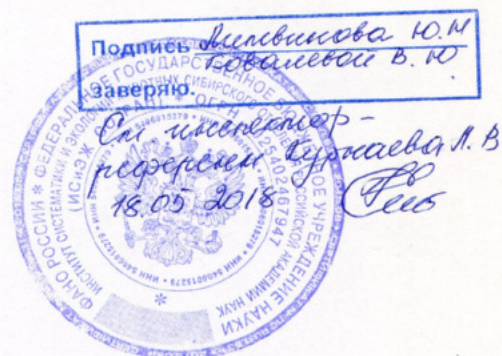 Подпись Литвинова Ю.Н
Ковалевой В. Ю
Заверяю.
Ст инспектор-
референт Л. В
18.05 2018
ФАНО РОССИИ * ФЕДЕРАЛЬНОЕ ГОСУДАРСТВЕННОЕ УЧРЕЖДЕНИЕ НАУКИ
ИНСТИТУТ СИСТЕМАТИКИ И ЭКОЛОГИИ ЖИВОТНЫХ СИБИРСКОГО РОССИЙСКОЙ АКАДЕМИИ НАУК
(ИСиЭЖ СО РАН) * ОГРН 1025402467947
* ИНН 5406015279 * ИНН 5406015279 * ИНН 5406015279